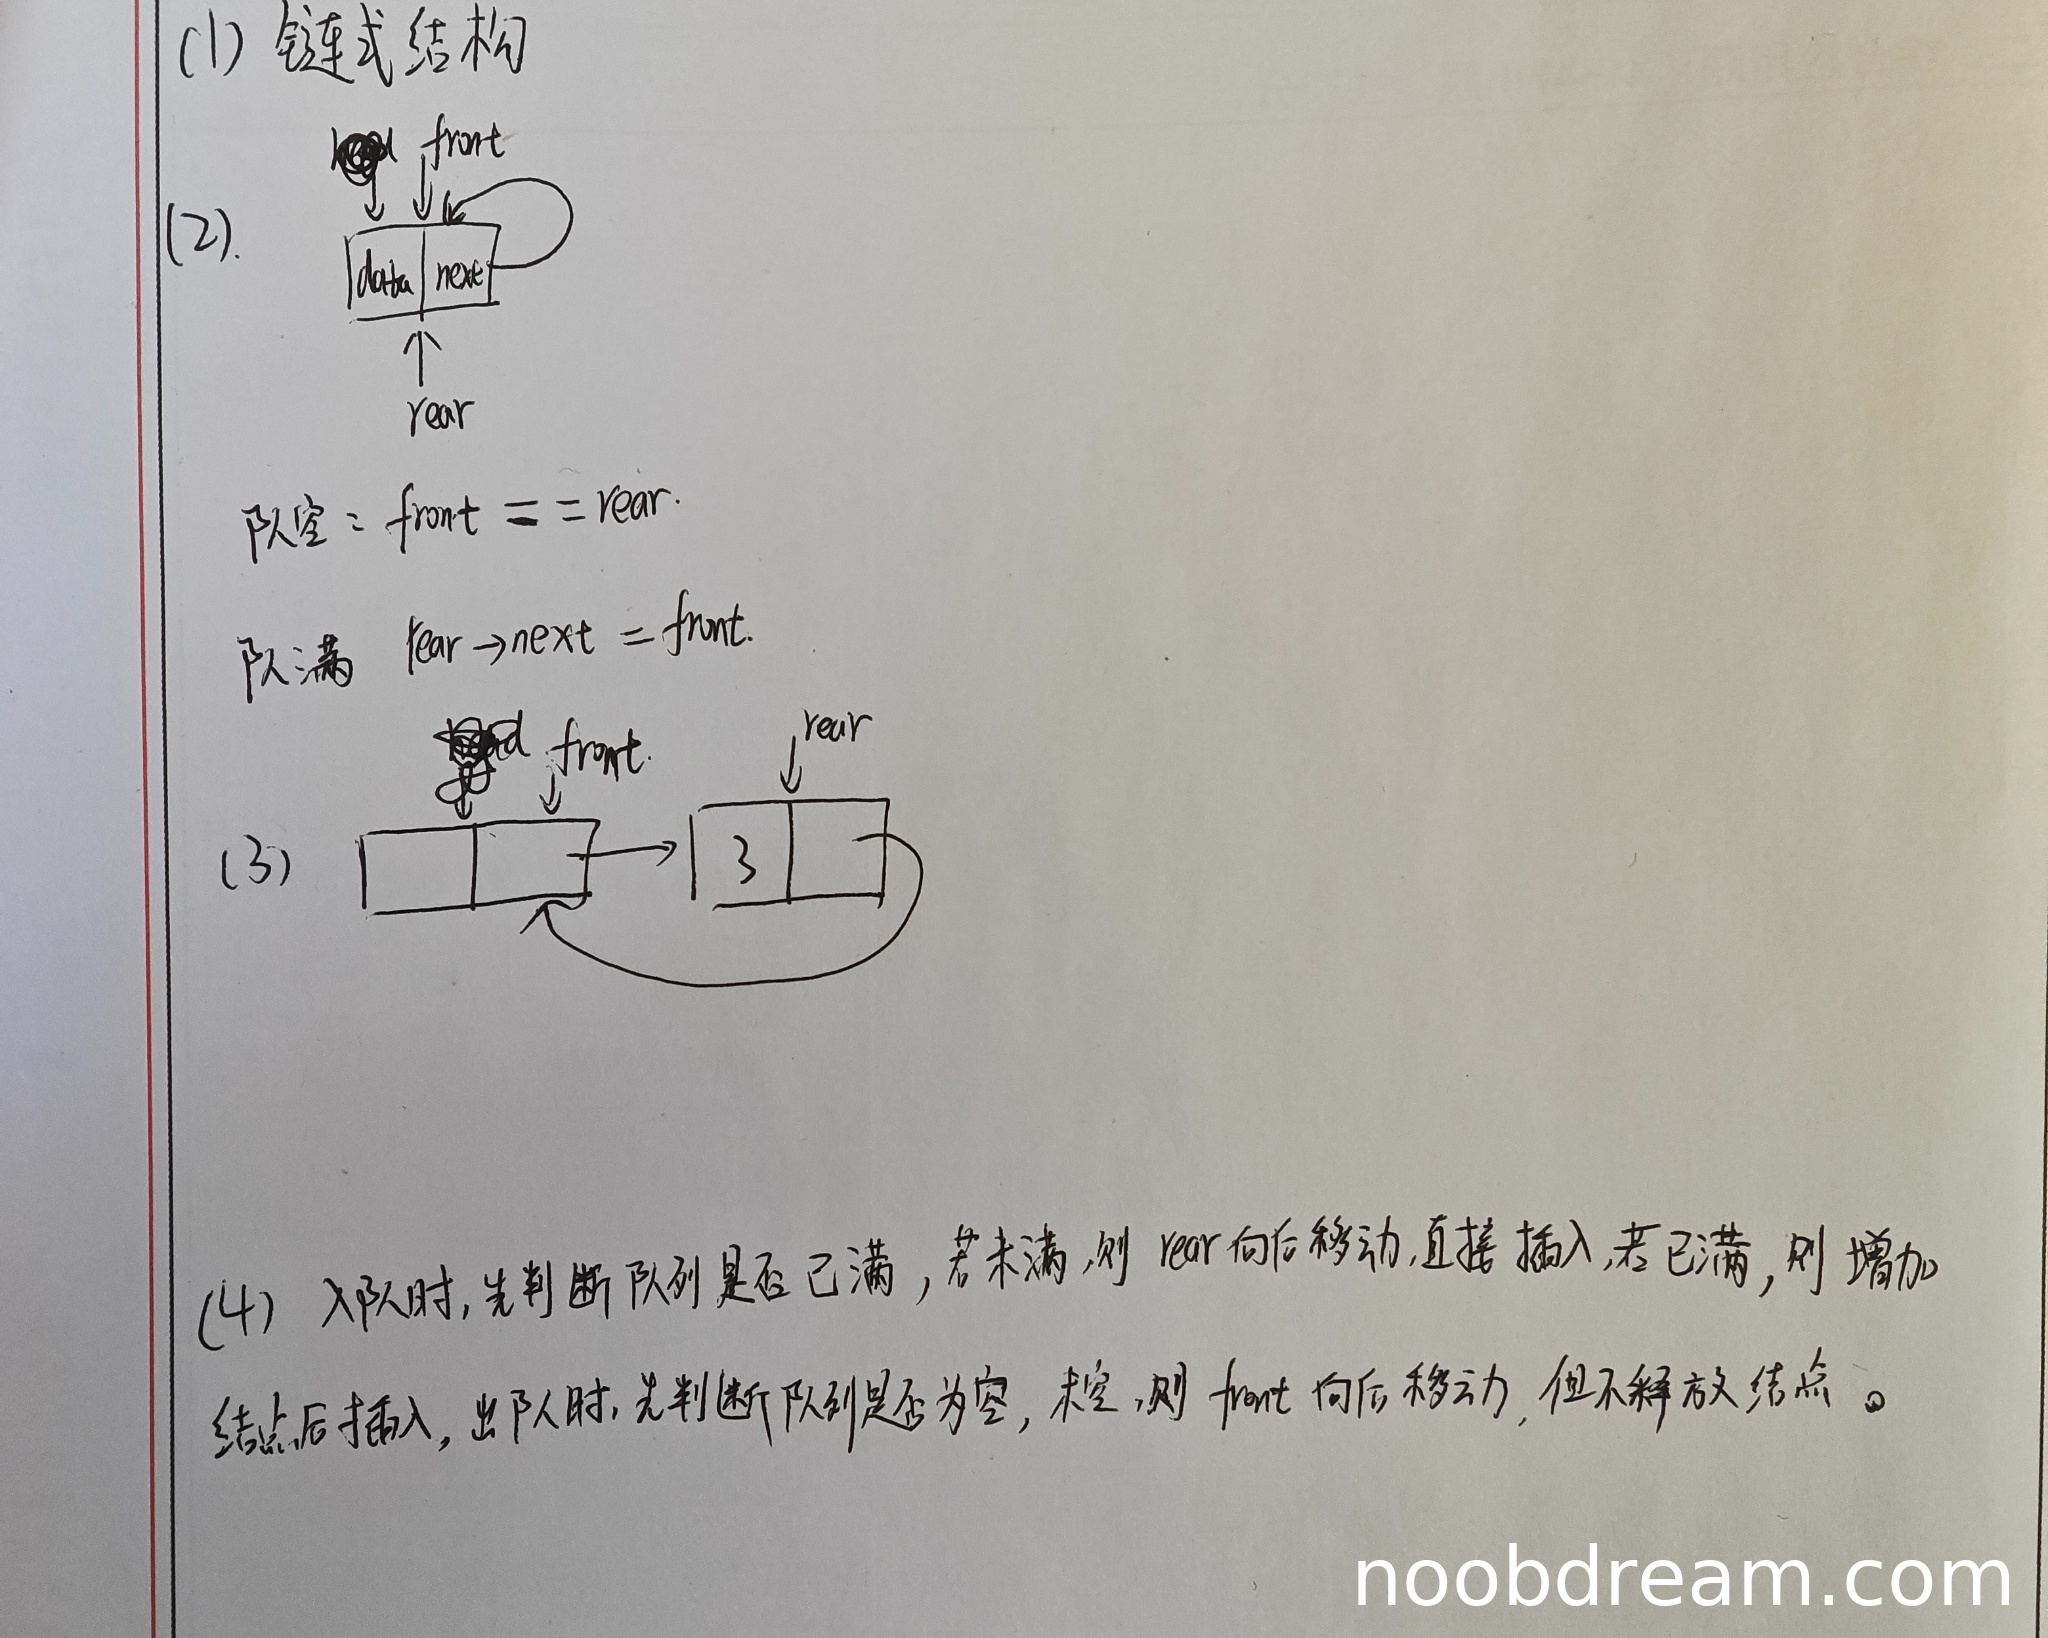 (1) 链式结构
front
(2).
data next
rear
队空: front == rear.
队满 rear→next = front.
front. rear
(3) 3
(4) 入队时,先判断队列是否已满,若未满,则 rear向后移动,直接插入,若已满,则 增加
结点后插入,出队时,先判断队列是否为空,未空,则 front 向后移动,但不释放结点。
noobdream.com